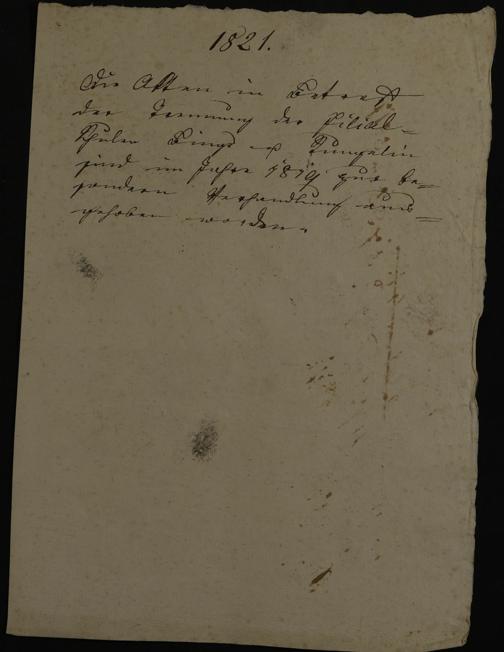 1821.
Die Akten in Betreff
der Trennung der Filial-
Schulen Bings u Rungelin
sind im Jahre 1819 zur be=
sondern Verhandlung aus=
gehoben worden.